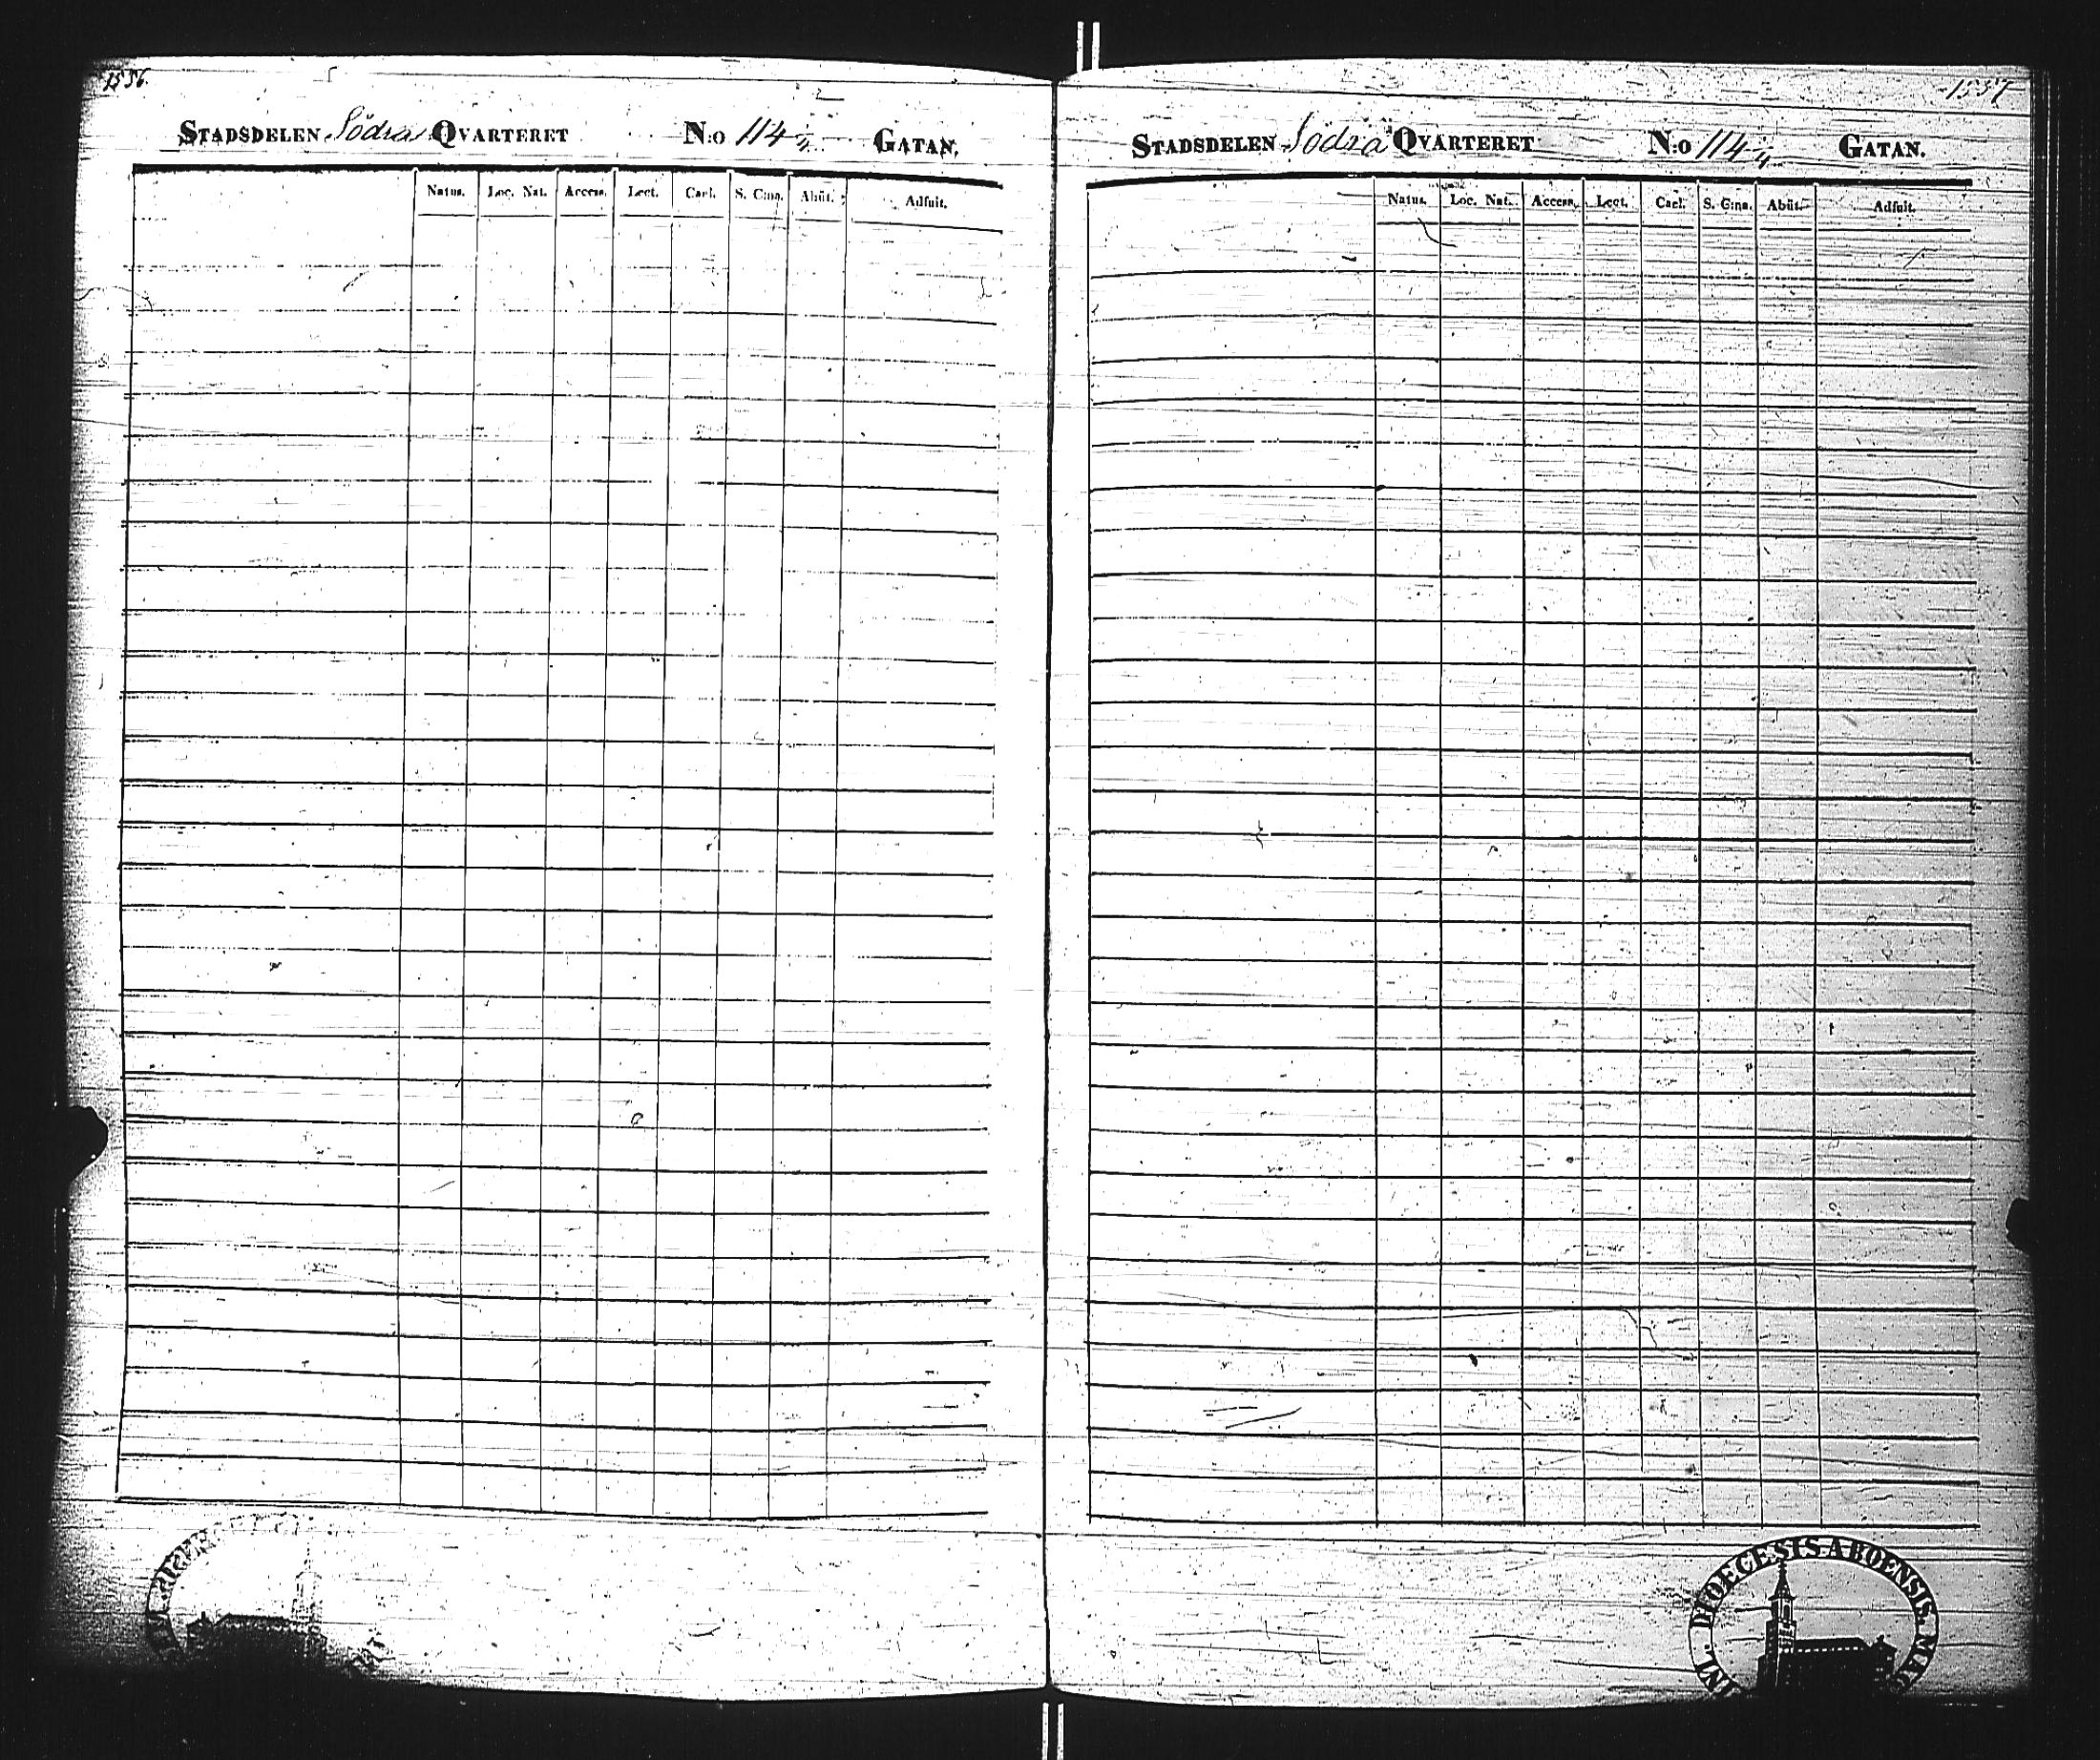 1556.
STADSDELEN Södra QVARTERET N:o 114 GATAN.
Natus. Loc. Nat. Access. Lect. Cael. S. Cœna. Abiit. Adfuit.
1557
STADSDELEN Södra QVARTERET N:o 114 GATAN.
Natus. Loc. Nat. Access. Lect. Cael. S. Cœna. Abiit. Adfuit.
DIOECESIS ABOENSIS.